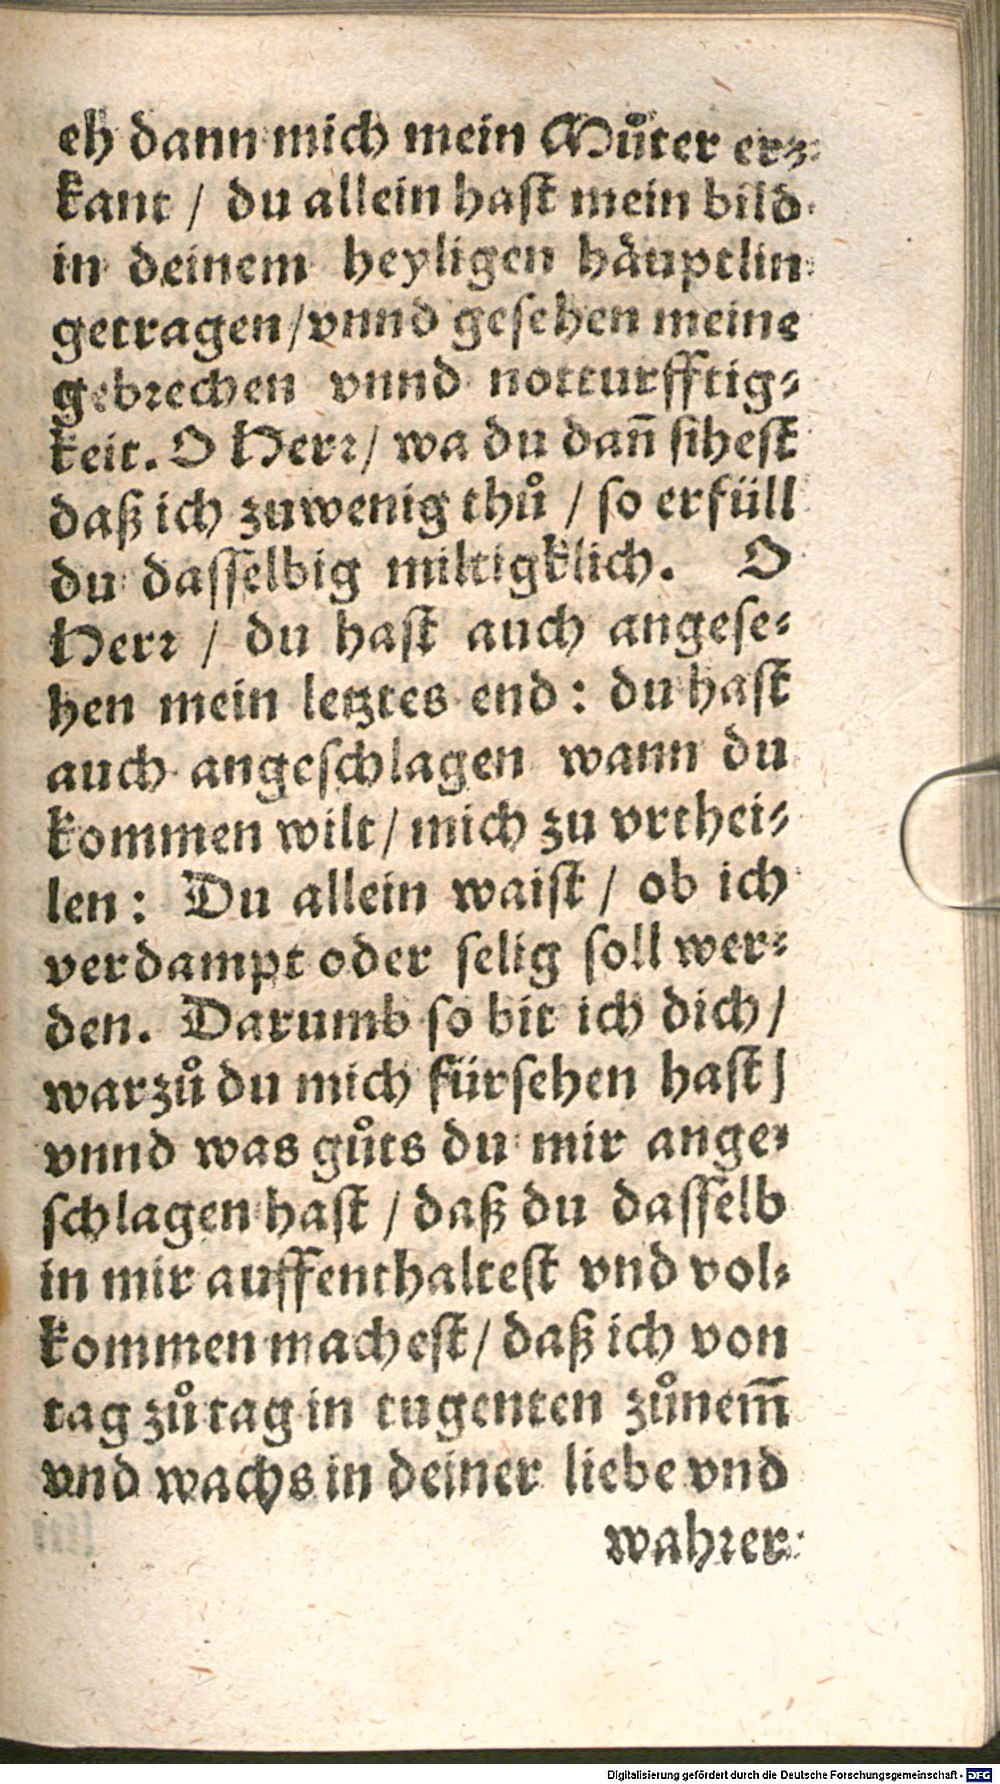 eh dann mich mein Můter er⸗
kant / du allein hast mein bild
in deinem heyligen häuptlin
getragen / vnnd gesehen meine
gebrechen vnnd notturfftig⸗
keit. O Herr / wa du dañ sihest
daß ich zuwenig thů / so erfüll
du dasselbig miltigklich. O
Herr / du hast auch angese⸗
hen mein letztes end : du hast
auch angeschlagen wann du
kommen wilt / mich zu vrthei⸗
len : Du allein waist / ob ich
verdampt oder selig soll wer⸗
den. Darumb so bit ich dich /
warzů du mich fürsehen hast /
vnnd was gůts du mir ange⸗
schlagen hast / daß du dasselb
in mir auffenthaltest vnd vol⸗
kommen machest / daß ich von
tag zů tag in tugenten zůnem̃
vnd wachs in deiner liebe vnd
wahrer
Digitalisierung gefördert durch die Deutsche Forschungsgemeinschaft - DFG